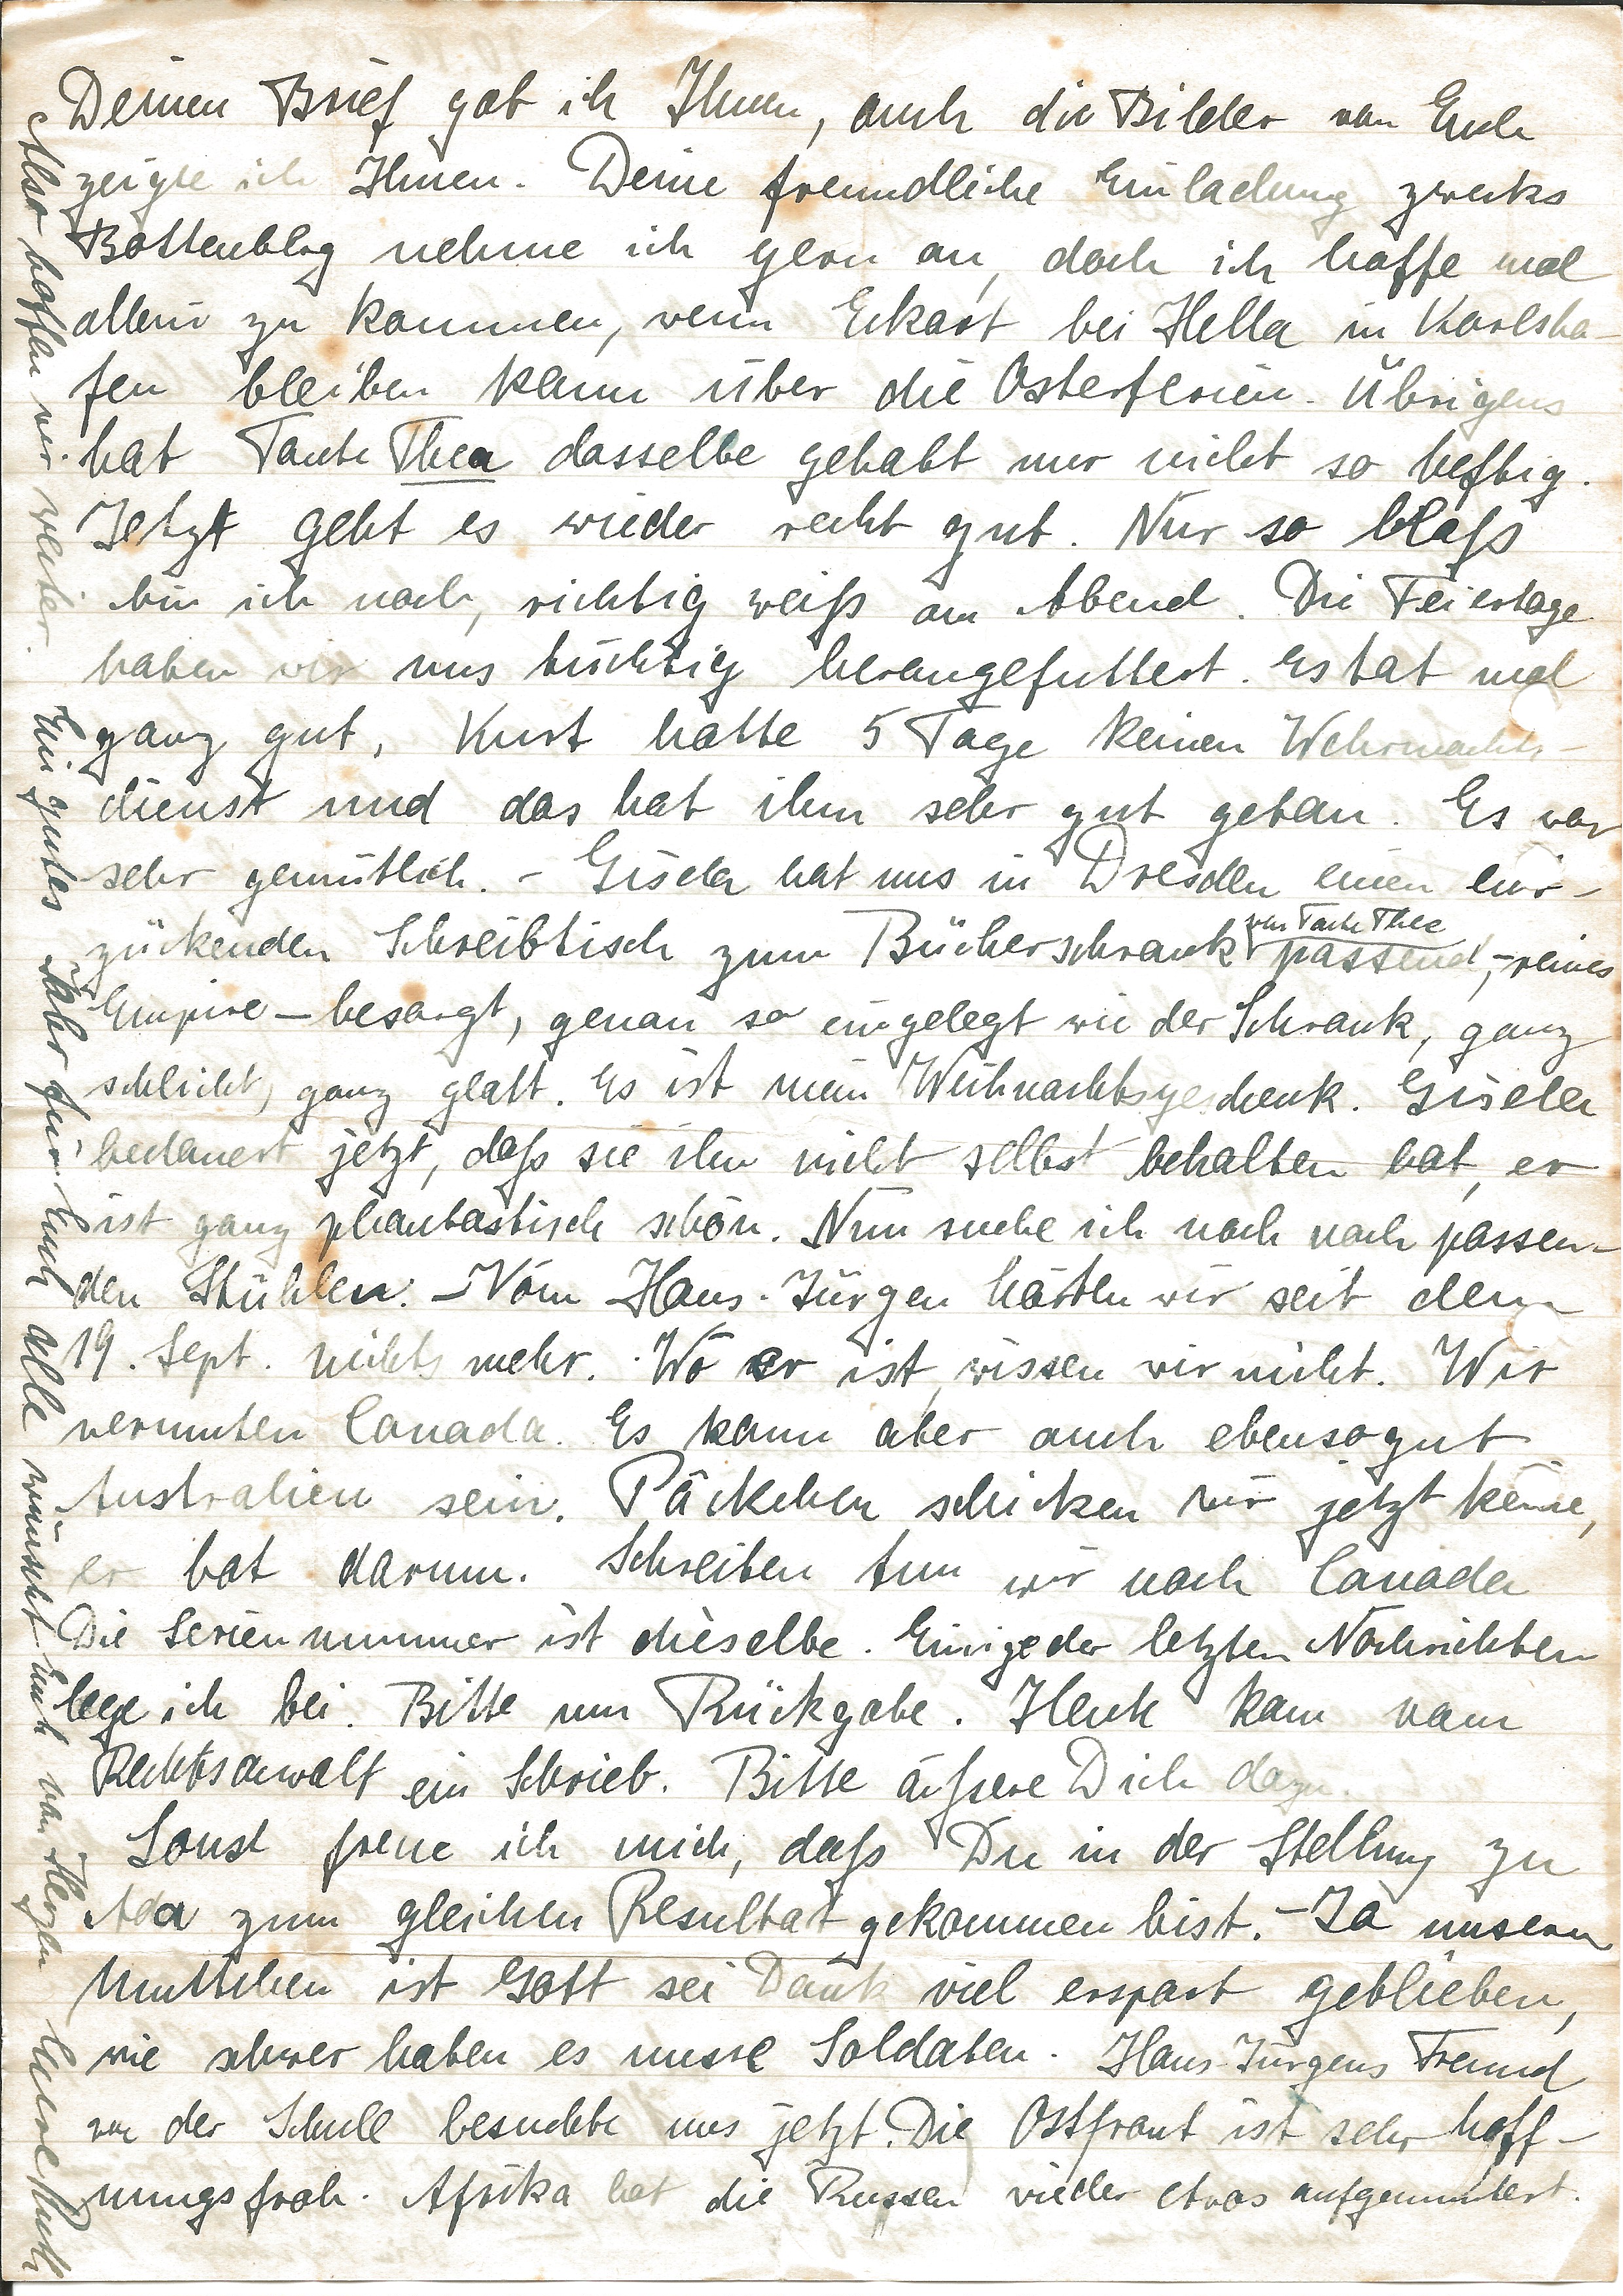 Deinen Brief gab ich Ihnen, auch die Bilder von Euch
zeigte ich Ihnen. Deine freundliche Einladung zwecks
nehme ich gern an, doch ich hoffe mal
allein zu kommen, wenn Eckart bei Hella in Karlsha-
fen bleiben kann über die Osterferien. Übrigens
hat Tante Thea dasselbe gehabt nur nicht so heftig.
Jetzt geht es wieder recht gut. Nur so blaß
bin ich noch, richtig weiß am Abend. Die Feiertage
haben wir uns tüchtig herangefuttert. Es tat mal
ganz gut, Kurt hatte 5 Tage keinen Wehrmachts-
dienst und das hat ihm sehr gut getan. Es war
sehr gemütlich. - Gisela hat uns in Dresden einen
zückenden Schreibtisch zum Bücherschrank von Tante Thea passend, - reines
Empire - besorgt, genau so eingelegt wie der Schrank, ganz
schlicht, ganz glatt. Es ist mein Weihnachtsgeschenk. Gisela
bedauert jetzt, daß sie ihn nicht selbst behalten hat, er
ist ganz phantastisch schön. Nun suche ich noch nach passen-
den Stühlen. - Von Hans-Jürgen hörten wir seit dem
19. Sept. nichts mehr. Wo er ist, wissen wir nicht. Wir
vermuten Canada. Es kann aber auch ebensogut
Australien sein. Päckchen schicken wir jetzt keine,
er bat darum. Schreiben tun wir nach Canada
Die Seriennummer ist dieselbe. Einige der letzten Nachrichten
lege ich bei. Bitte um Rückgabe. Heute kam vom
Rechtsanwalt ein Schrieb. Bitte äußere Dich dazu.
Sonst freue ich mich, daß Du in der Stellung zu
Ada zum gleichen Resultat gekommen bist. - Ja unserm
Muttchen ist Gott sei Dank viel erspart geblieben,
wie schwer haben es unsre Soldaten. Hans-Jürgens Freund
von der Schule besuchte uns jetzt. Die Ostfront ist sehr hoff-
nungsfroh. Afrika hat die Russen wieder etwas aufgemuntert.
Also hoffen wir weiter. Ein gutes Jahr für Euch alle wünscht Euch von Herzen Eure Ruth